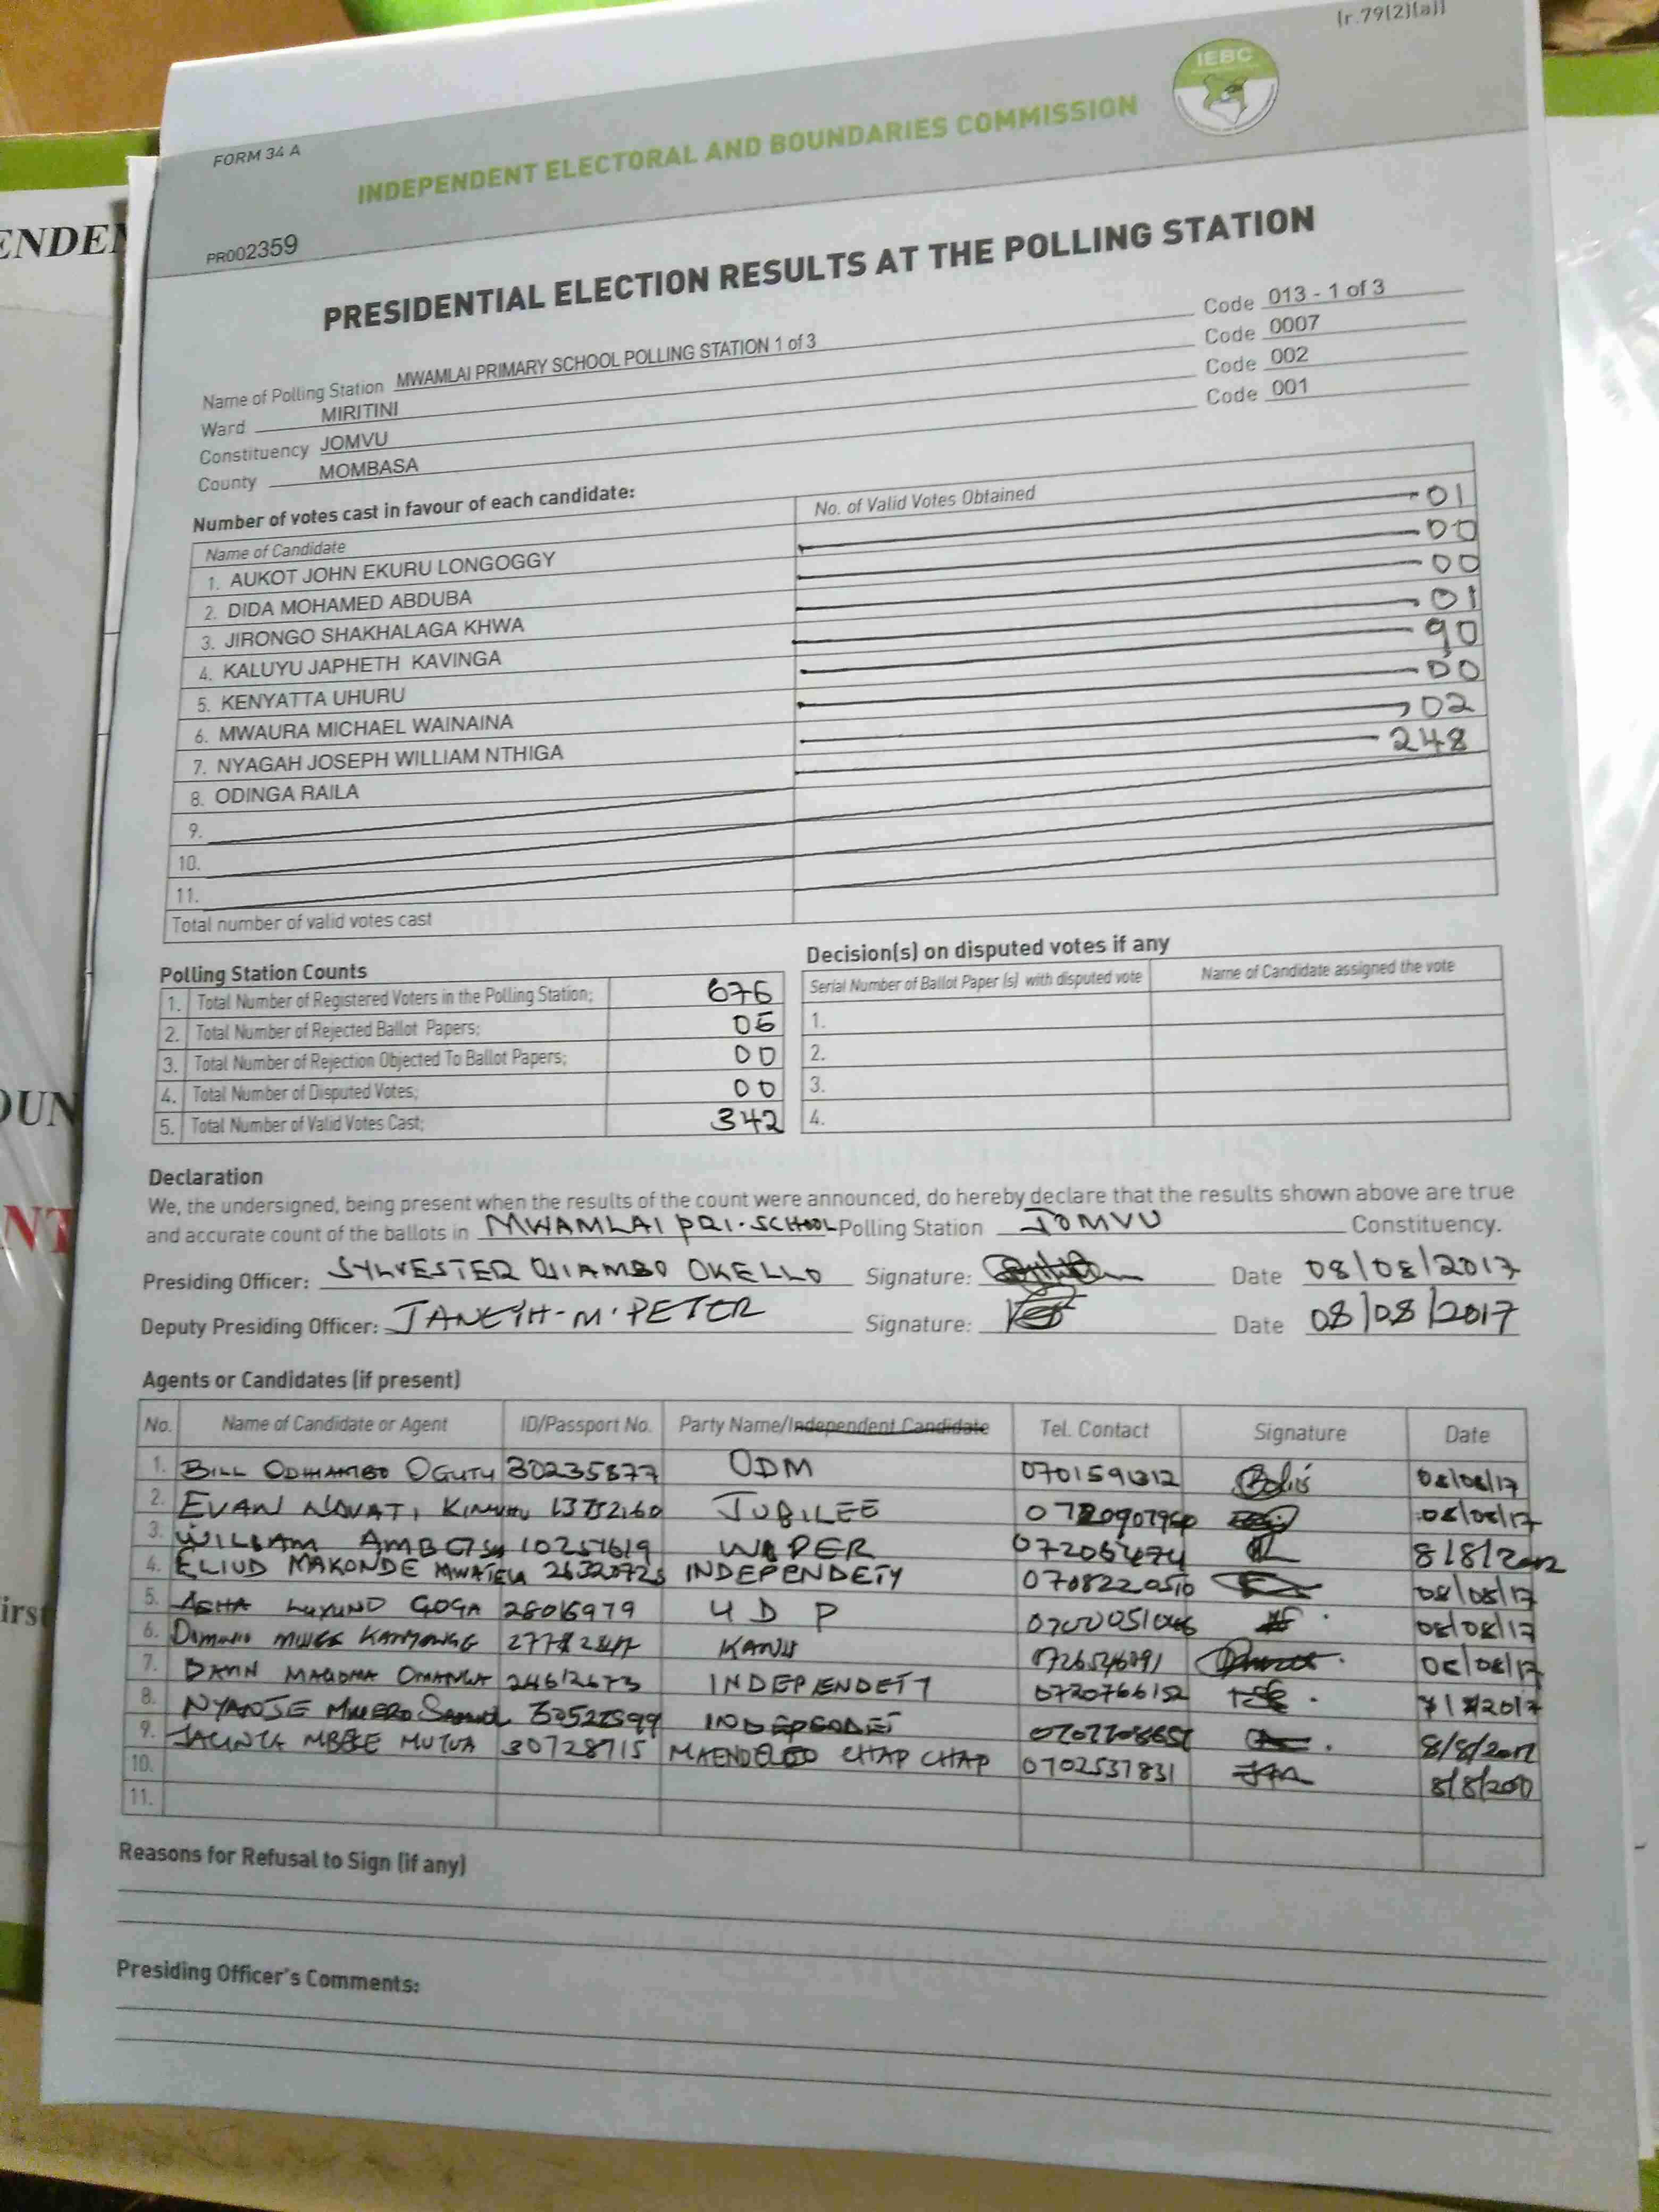 (r.79(2)(a))
FORM 34 A
IEBC
INDEPENDENT ELECTORAL AND BOUNDARIES COMMISSION
PR002359
PRESIDENTIAL ELECTION RESULTS AT THE POLLING STATION
Name of Polling Station MWAMLAI PRIMARY SCHOOL POLLING STATION 1 of 3 Code 013 - 1 of 3
Ward MIRITINI Code 0007
Constituency JOMVU Code 002
County MOMBASA Code 001
Number of votes cast in favour of each candidate:
Name of Candidate No. of Valid Votes Obtained
1. AUKOT JOHN EKURU LONGOGGY 01
2. DIDA MOHAMED ABDUBA 00
3. JIRONGO SHAKHALAGA KHWA 00
4. KALUYU JAPHETH KAVINGA 01
5. KENYATTA UHURU 90
6. MWAURA MICHAEL WAINAINA 00
7. NYAGAH JOSEPH WILLIAM NTHIGA 02
8. ODINGA RAILA 248
9.
10.
11.
Total number of valid votes cast
Polling Station Counts
1. Total Number of Registered Voters in the Polling Station; 676
2. Total Number of Rejected Ballot Papers;
3. Total Number of Rejection Objected To Ballot Papers; 00
4. Total Number of Disputed Votes; 00
5. Total Number of Valid Votes Cast; 342
Decision(s) on disputed votes if any
Serial Number of Ballot Paper (s) with disputed vote Name of Candidate assigned the vote
1.
2.
3.
4.
Declaration
We, the undersigned, being present when the results of the count were announced, do hereby declare that the results shown above are true
and accurate count of the ballots in MWAMLAI PRI. SCHOOL Polling Station JOMVU Constituency.
Presiding Officer: SYLVESTER OKELLO Signature: Date 08/08/2017
Deputy Presiding Officer: M. PETER Signature: Date 08/08/2017
Agents or Candidates (if present)
No. Name of Candidate or Agent ID/Passport No. Party Name/Independent Candidate Tel. Contact Signature Date
1. BILL ODHIAMBO OGUTU 30235877 ODM 08/08/17
2. EVAN JUBILEE 08/08/17
3. WILLIAM 10257619 WIPER
4. ELIUD MAKONDE INDEPENDETY 08/08/17
5. ASHA GOGA 28016979 U D P 08/08/17
6. KANU
7. INDEPENDETT
8. NYANJE 8/8/2017
9. JACINTA MUTUA 30728715 MAENDELEO CHAP CHAP 0702537831
10.
11.
Reasons for Refusal to Sign (if any)
Presiding Officer's Comments:
ENDE
OUN
NT
irst